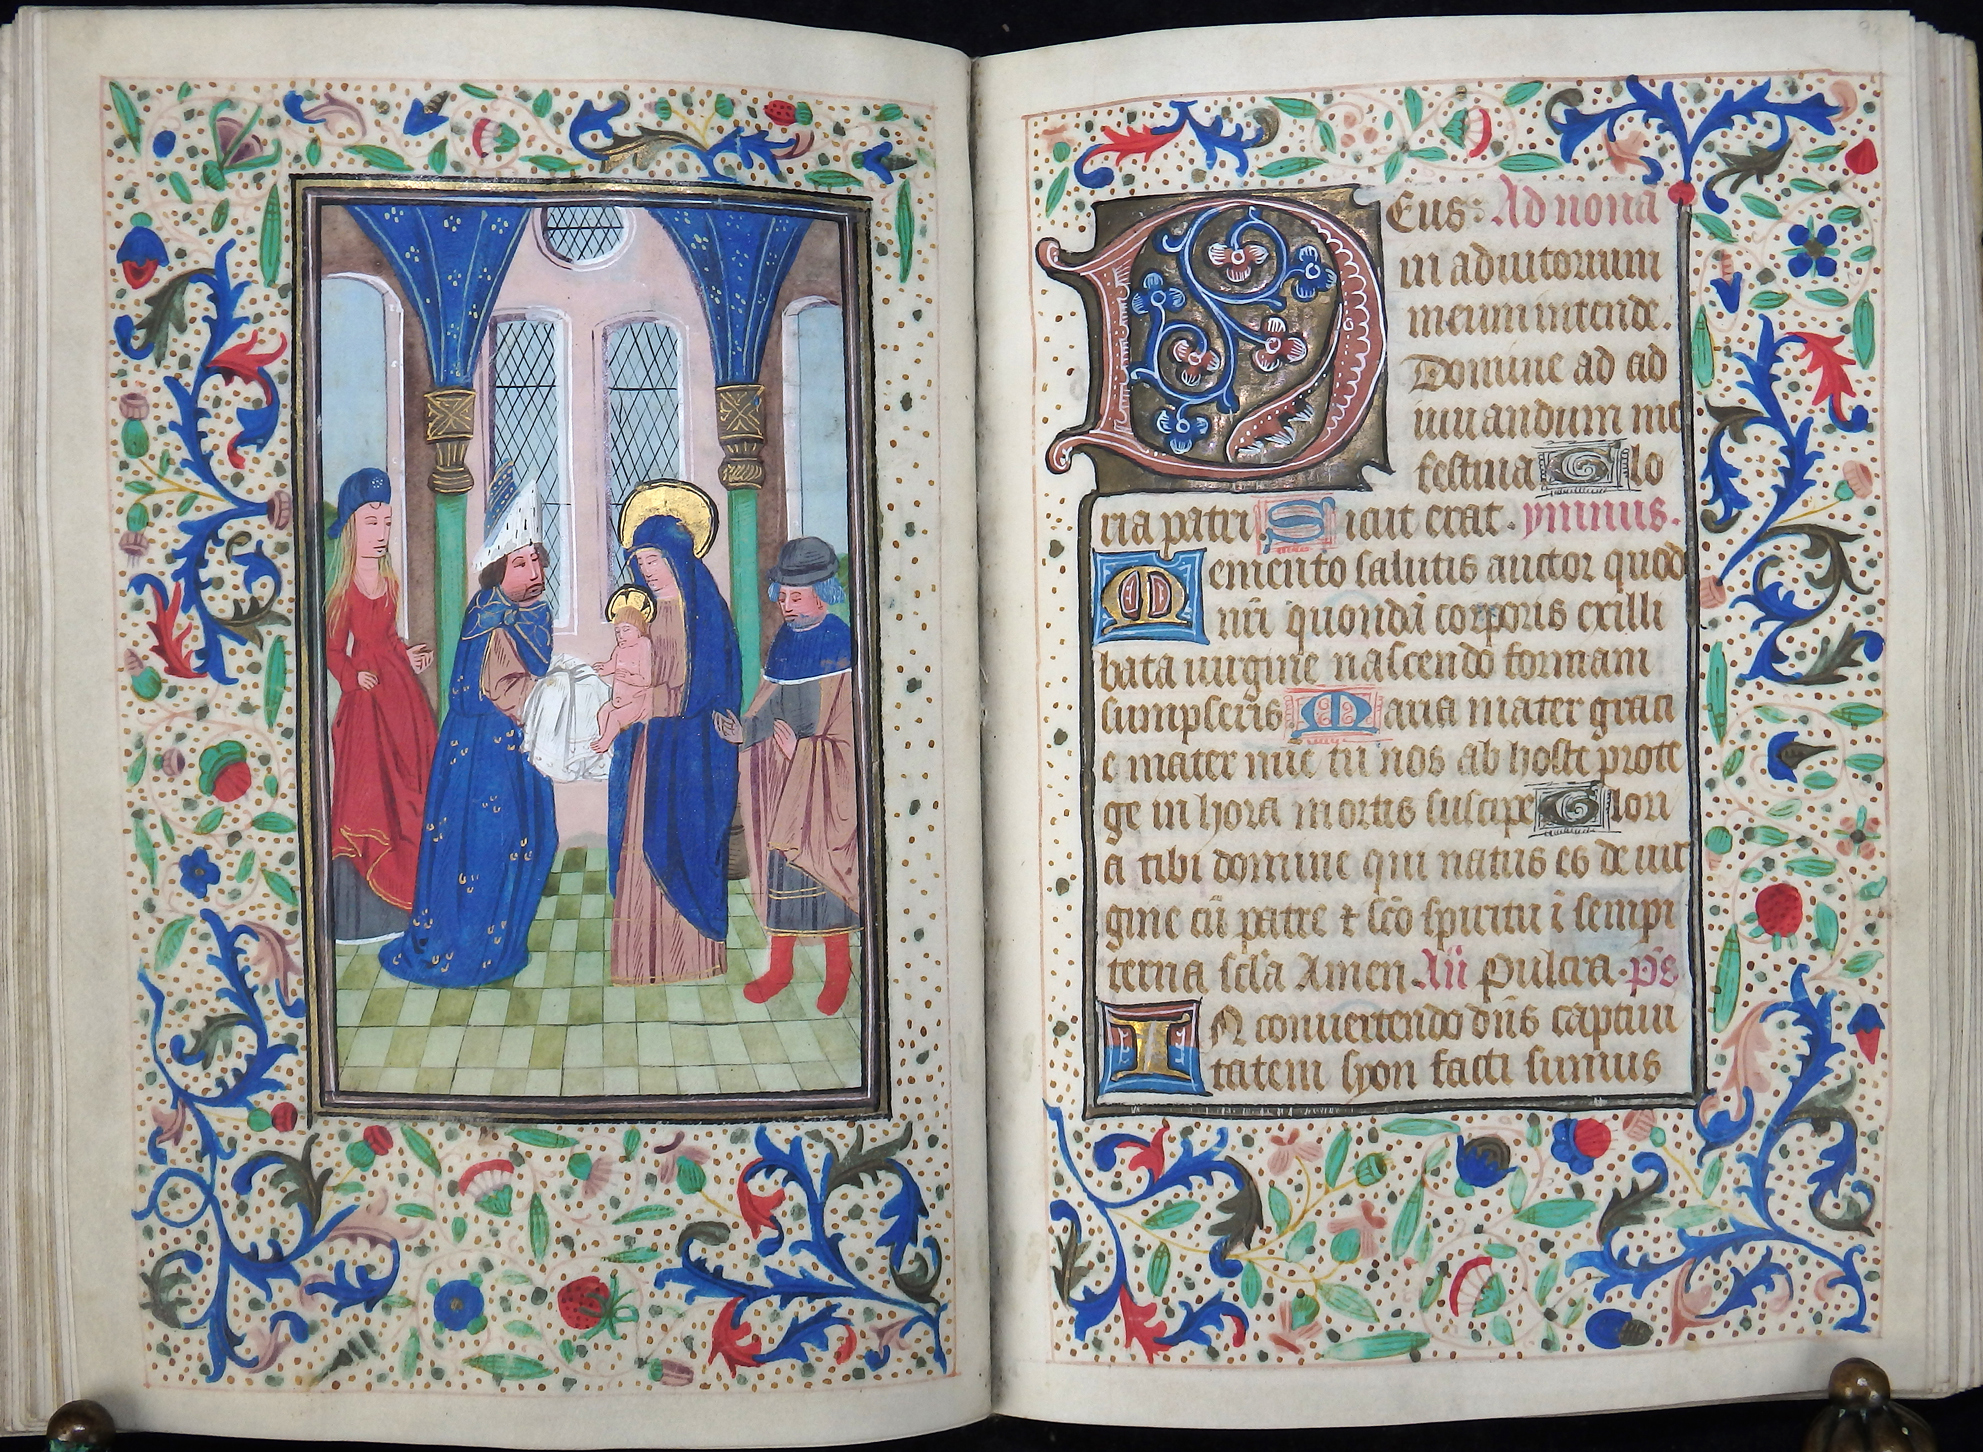 DEus: Ad nona
in adiutorium
meum intende.
Domine ad ad
iuuandum me
festina Glo
ria patri Sicut erat. ymnus.
Memento salutis auctor quod
nr̄i quondā corporis exilli
bata uirgine nascendo formam
sumpseris Maria mater graci
e mater mīe tu nos ab hoste prote
ge in hora mortis suscipe Glori
a tibi domine qui natus es de uir
gine cū patre ⁊ sc̄o spiritu ī sempi
terna sc̄la Amen. An̄ Pulcra. p̄s
IN conuertendo dn̄s captiui
tatem syon facti sumus